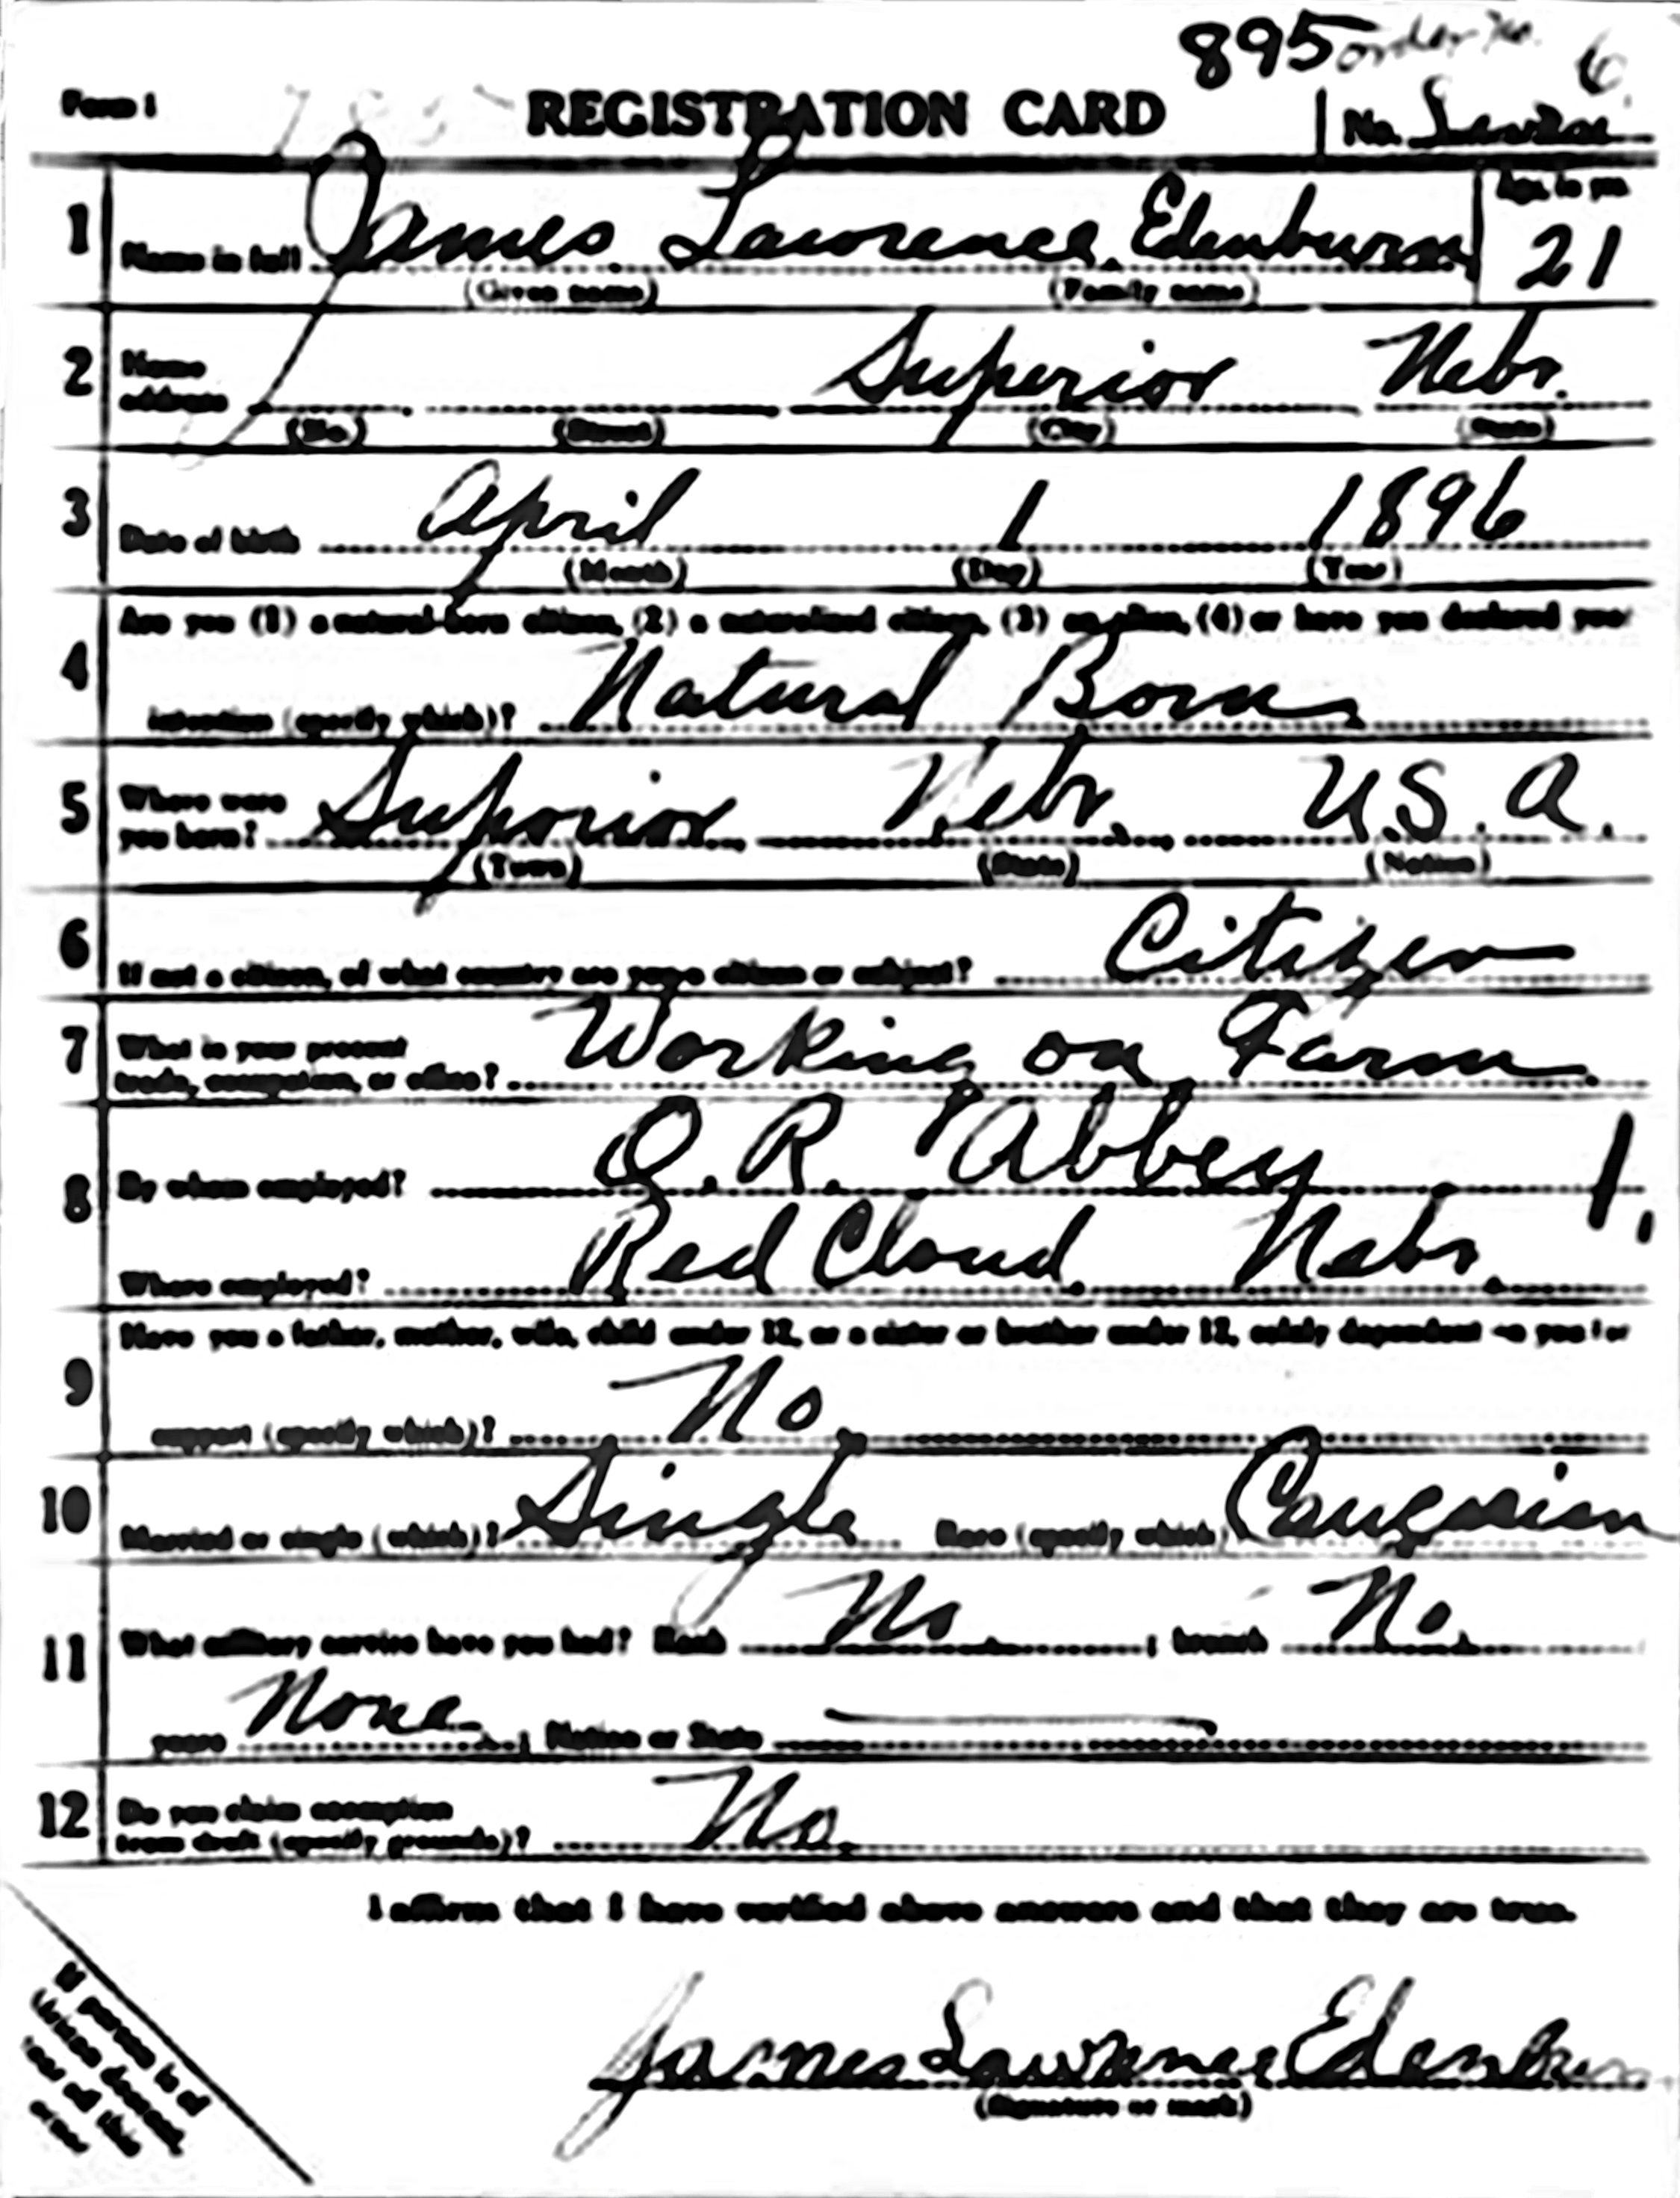 895 order No. 6.
Form 1 REGISTRATION CARD No.
Age, in yrs
1 Name in full James Lawrence Edenburn 21
(Given name) (Family name)
2 Home address Superior Nebr.
(No.) (Street) (City) (State)
3 Date of birth April 1 1896
(Month) (Day) (Year)
4 Are you (1) a natural-born citizen, (2) a naturalized citizen, (3) an alien, (4) or have you declared your
intention (specify which)? Natural Born
5 Where were you born? Superior Nebr. U.S.A.
(Town) (State) (Nation)
6 If not a citizen, of what country are you a citizen or subject? Citizen
7 What is your present
trade, occupation, or office? Working on Farm.
8 By whom employed? O. R. Abbey 1.
Where employed? Red Cloud. Nebr.
9 Have you a father, mother, wife, child under 12, or a sister or brother under 12, solely dependent on you for
support (specify which)? No
10 Married or single (which)? Single Race (specify which) Caugasian
11 What military service have you had? Rank No ; branch No.
years None ; Nation or State
12 Do you claim exemption
from draft (specify grounds)? No.
I affirm that I have verified above answers and that they are true.
James Lawrence Edenburn
(Signature or mark)
If person is of
African descent,